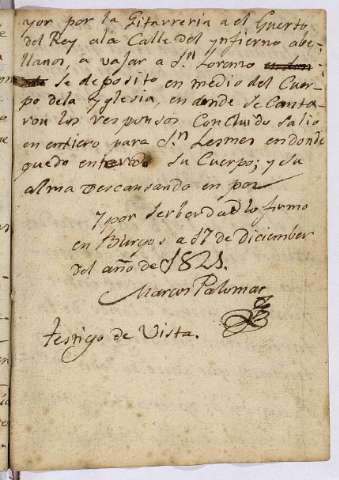 yor por la Gitarreria a el Guerto
del Rey a la Calle del ynfierno abe-
llanos, a vajar a Sn. Lorenzo
se deposito en medio del Cuer-
po dela Yglesia, en donde se Canta-
ron los responsos Concluido salio
en entiero para Sn. Lesmes en donde
quedo enterrado su Cuerpo; y su
alma descansando en paz
Y por ser berdad lo firmo
en Burgos a 17 de diciember
del año de 1821.
Marcos Palomar
testigo de Vista.